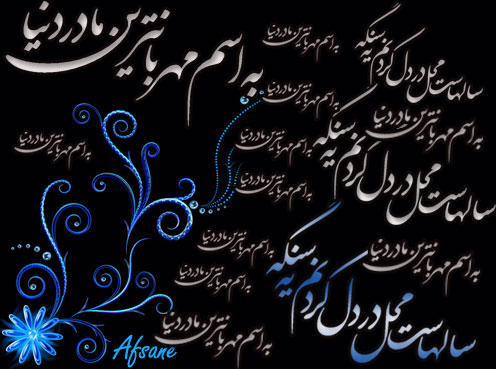 به اسم مهربانترین مادر دنیا
به اسم مهربانترین مادر دنیا
سالهاست محل درد دل کردنم یه سنگه
به اسم مهربانترین مادر دنیا
به اسم مهربانترین مادر دنیا
سالهاست محل درد دل کردنم یه سنگه
به اسم مهربانترین مادر دنیا
به اسم مهربانترین مادر دنیا
به اسم مهربانترین مادر دنیا
به اسم مهربانترین مادر دنیا
سالهاست محل درد دل کردنم یه سنگه
به اسم مهربانترین مادر دنیا
به اسم مهربانترین مادر دنیا
به اسم مهربانترین مادر دنیا
Afsane